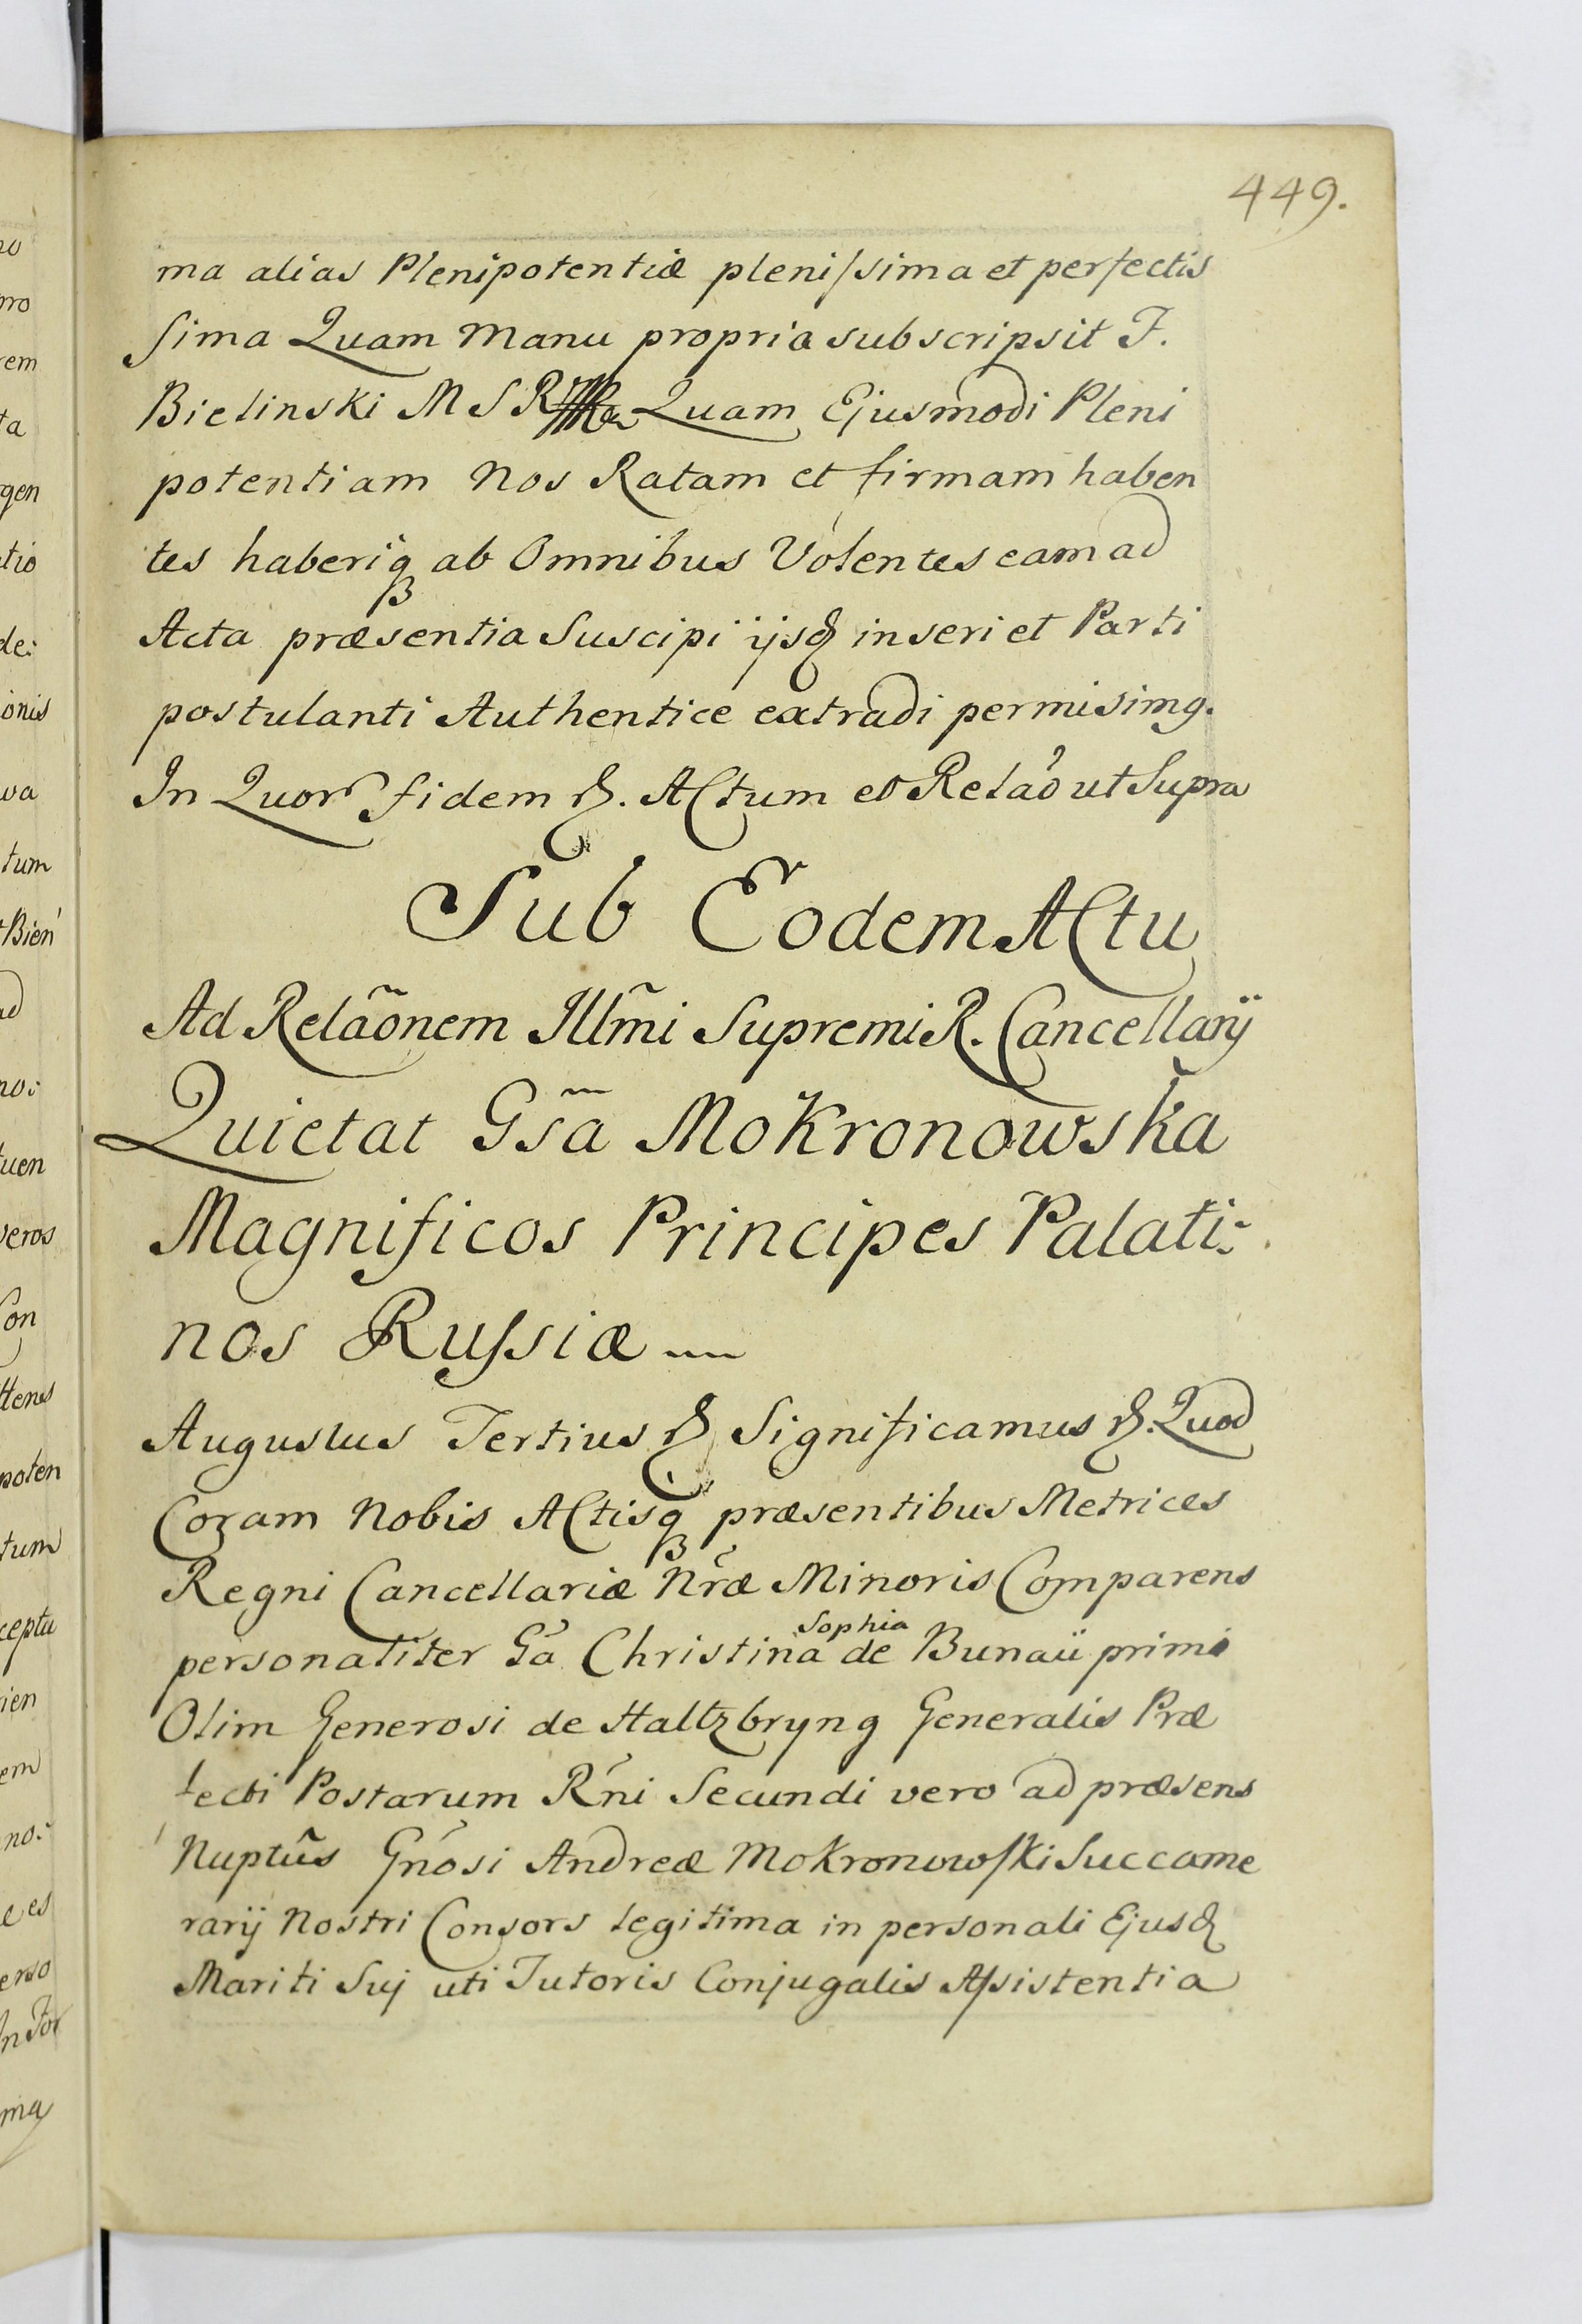 449.
ma alias Plenipotentiæ plenissima et perfectis
sima Quam manu propria subscripsit F.
Bielinski M S R Quam Ejusmodi Pleni
potentiam Nos Ratam et firmam haben
tes haberiq ab Omnibus Volentes eam ad
Acta præsentia Suscipi ijsq inseri et Parti
postulanti Authentice extradi permisimg.
In Quor fidem &. Actum et Relaõ ut Supra
Sub Eodem Actu
Ad Relaõnem Illm̃i Supremi R. Cancellarij
Quietat Gsã Mokronowska
Magnificos Principes Palati:
nos Russiæ
Augustus Tertius & Significamus &. Quod
Coram Nobis Actisq præsentibus Metrices
Regni Cancellariæ Nr̃æ Minoris Comparens
personaliter Gã Christina Sophia de Bunaü primi
Olim Generosi de Haltzbryng Generalis Præ
fecti Postarum Rńi Secundi vero ad præsens
Nuptũs Gnósi Andreæ Mokronowski Succame
rarij Nostri Consors legitima in personali Ejusq
Mariti Suj uti Tutoris Conjugalis Assistentia